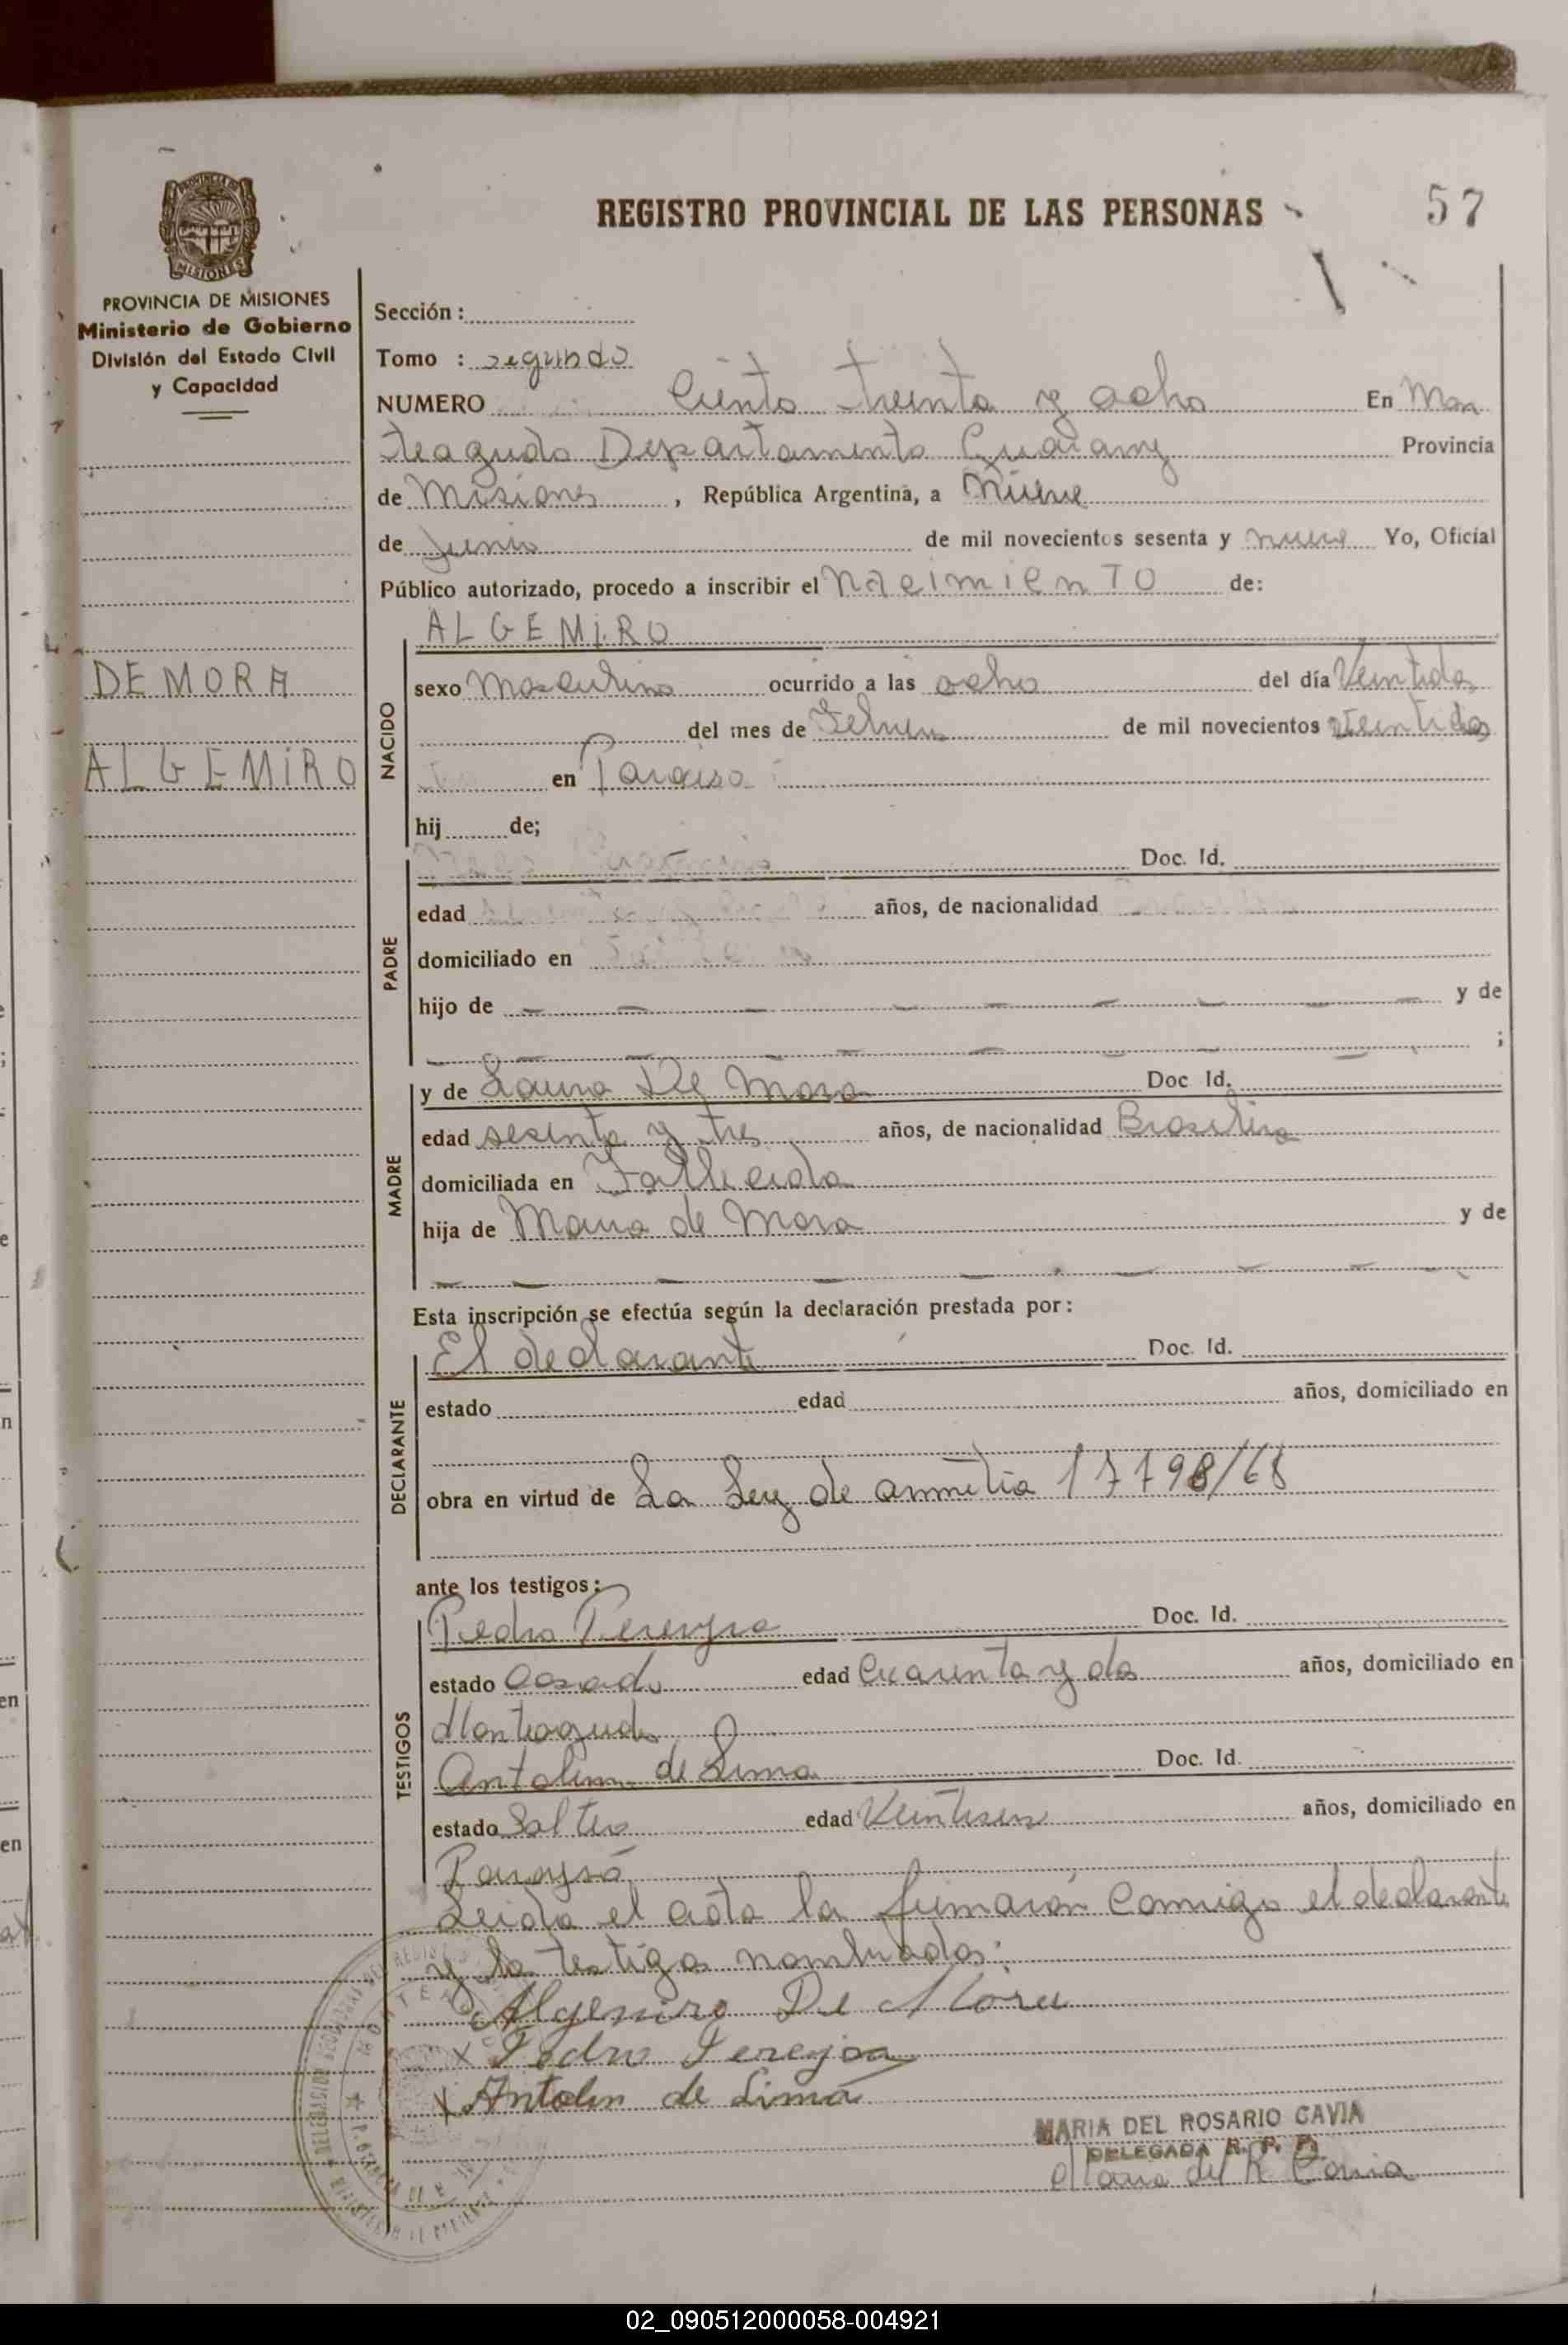 REGISTRO PROVINCIAL DE LAS PERSONAS
57
PROVINCIA DE MISIONES
Ministerio de Gobierno
División del Estado Civil
y Capacidad
Sección :
Tomo : segundo
NUMERO Ciento treinta y ocho En Mon
teagudo Departamento Guarany Provincia
de Misiones , República Argentina, a Nueve
de Junio de mil novecientos sesenta y nueve Yo, Oficial
Público autorizado, procedo a inscribir el NacimienTO de:
DE MORA
ALGEMIRO
NACIDO
ALGEMIRO
sexo Masculino ocurrido a las ocho del día Veintidos
del mes de Febrero de mil novecientos veintidos
en Paraiso
hij de;
PADRE
Doc. Id.
edad años, de nacionalidad
domiciliado en
hijo de y de
;
MADRE
y de Laura De Mora Doc. Id.
edad sesenta y tres años, de nacionalidad Brasilera
domiciliada en Fallecida
hija de Maria de Mora y de
Esta inscripción se efectúa según la declaración prestada por:
DECLARANTE
El declarante Doc. Id.
estado edad años, domiciliado en
obra en virtud de La Ley de amnetia 17798/68
ante los testigos:
TESTIGOS
Pedro Pereyra Doc. Id.
estado Casado edad Cuarenta y dos años, domiciliado en
Monteagudo
Antolin de Lima Doc. Id.
estado Soltero edad años, domiciliado en
Paraysó
Leida el acta la firmarón Comigo el declarante
y los testigos nombrados:
Algemiro De Mora
x Pedro Pereyra
x Antolin de Lima
MARIA DEL ROSARIO CAVIA
DELEGADA R. P. P.
Maria del R. Cavia
02_090512000058-004921